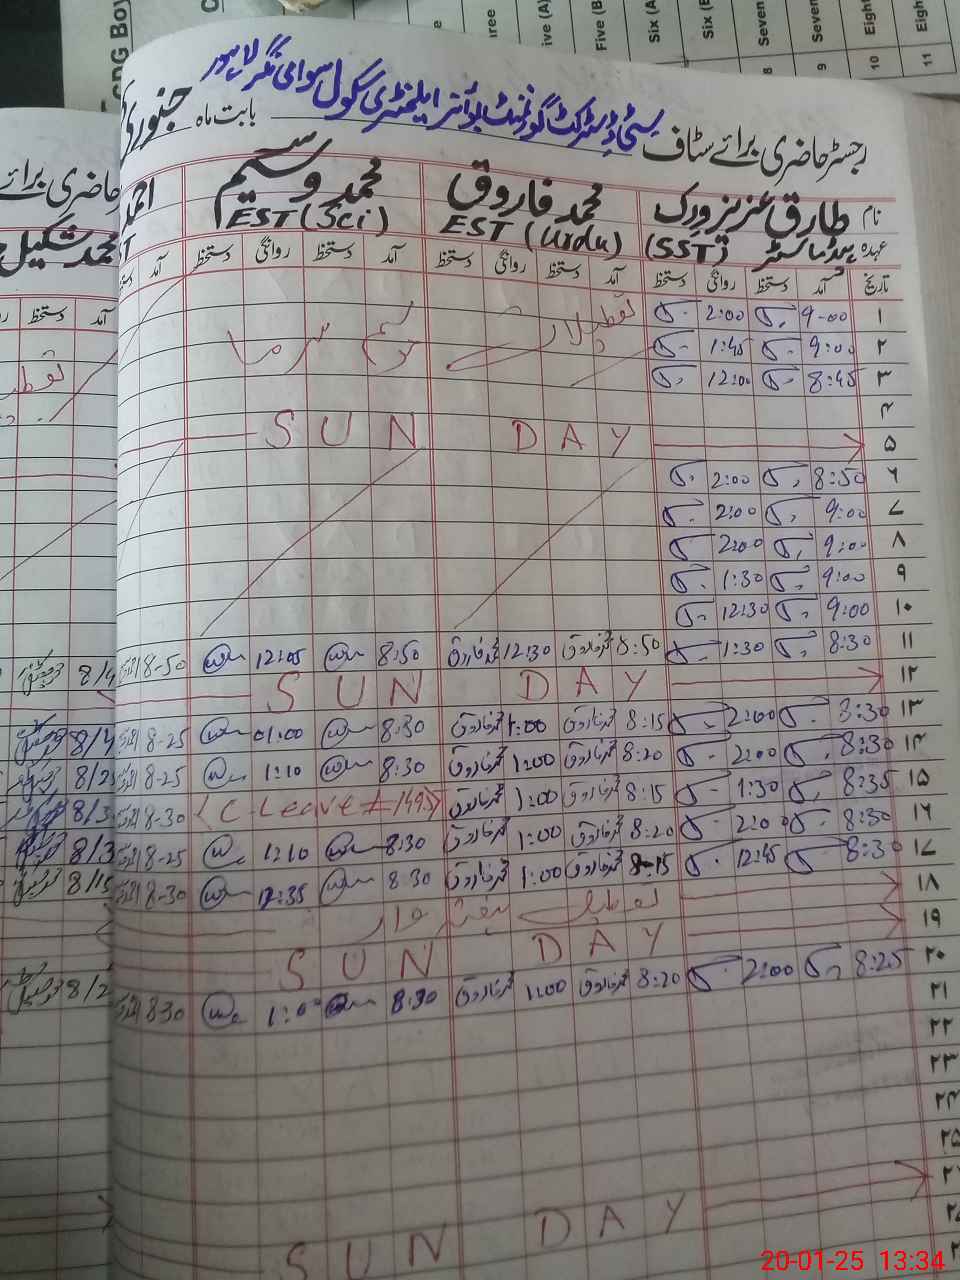 CDG Boy
Three
Five (A)
Five (B)
Six (A)
Six (B)
Seven
Seven
Eight
Eight
8
9
10
11
سٹی ڈسٹرکٹ گورنمنٹ بوائز ایلیمنٹری سکول سوامی نگر لاہور
رجسٹر حاضری برائے سٹاف بابت ماہ جنوری
حاضری برائے
نام طارق عزیز ورک محمد فاروق محمد وسیم احمد
محمد شکیل
عہدہ ہیڈ ماسٹر (SST) EST (Urdu) EST (Sci)
تاریخ آمد دستخط روانگی دستخط آمد دستخط روانگی دستخط آمد دستخط روانگی دستخط آمد
آمد دستخط
۱ 9-00 2:00
۲ 9:00 1:45
۳ 8:45 12:00
تعطیلات موسم سرما
۴
۵ SUN DAY
۶ 8:50 2:00
۷ 9:00 2:00
۸ 9:00 2:00
۹ 9:00 1:30
۱۰ 9:00 12:30
۱۱ 8:30 1:30 8:50 محمد فاروق 12:30 محمد فاروق 8:50 12:05 8-50
۱۲ SUN DAY
۱۳ 8:30 2:00 8:15 محمد فاروق 1:00 محمد فاروق 8:30 01:00 8-25
۱۴ 8:30 2:00 8:20 محمد فاروق 1:00 محمد فاروق 8:30 1:10 8-25
۱۵ 8:35 1:30 8:15 محمد فاروق 1:00 محمد فاروق C-Leave # 1495 8-30
۱۶ 8:30 2:00 8:20 محمد فاروق 1:00 محمد فاروق 8:30 1:10 8-25
۱۷ 8:30 12:45 8-15 محمد فاروق 1:00 محمد فاروق 8:30 12:35 8-30
۱۸ تعطیل ہفتہ وار
۱۹ SUN DAY
۲۰ 8:25 2:00 8:20 محمد فاروق 1:00 محمد فاروق 8:30 1:00 8-30
۲۱
۲۲
۲۳
۲۴
۲۵
SUN DAY
20-01-25 13:34